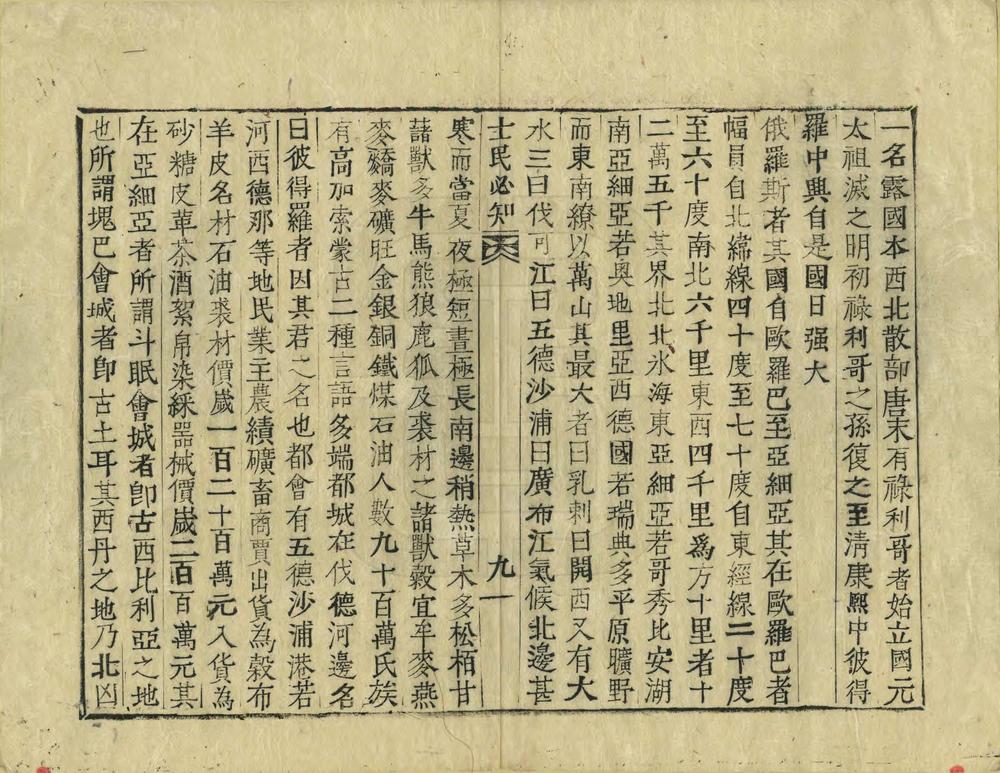 一名露國本西北散部唐末有祿利哥者始立國元
太祖滅之明初祿利哥之孫復之至清康熙中彼得
羅中興自是國日强大
俄羅斯者其國自歐羅巴至亞細亞其在歐羅巴者
幅員自北緯線四十度至七十度自東經線二十度
至六十度南北六千里東西四千里爲方十里者十
二萬五千其界北北氷海東亞細亞若哥秀比安湖
南亞細亞若奧地里亞西德國若瑞典多平原曠野
而東南繚以萬山其最大者曰乳刺曰開西又有大
水三曰伐可江曰五德沙浦曰廣布江氣候北邊甚
士民必知 大 九一
寒而當夏夜極短晝極長南邊稍熱草木多松栢甘
藷獸多牛馬熊狼鹿狐及裘材之諸獸穀宜牟麥燕
麥蕎麥礦旺金銀銅鐵煤石油人數九十百萬氏族
有高加索蒙古二種言語多端都城在伐德河邊名
曰彼得羅者因其君之名也都會有五德沙浦港若
河西德那等地民業主農績礦畜商賈出貨為穀布
羊皮名材石油裘材價歲一百二十百萬元入貨為
砂糖皮革茶酒絮帛染綵器械價歲二百百萬元其
在亞細亞者所謂斗眠會城者卽古西比利亞之地
也所謂塊巴會城者卽古土耳其西丹之地乃北凶